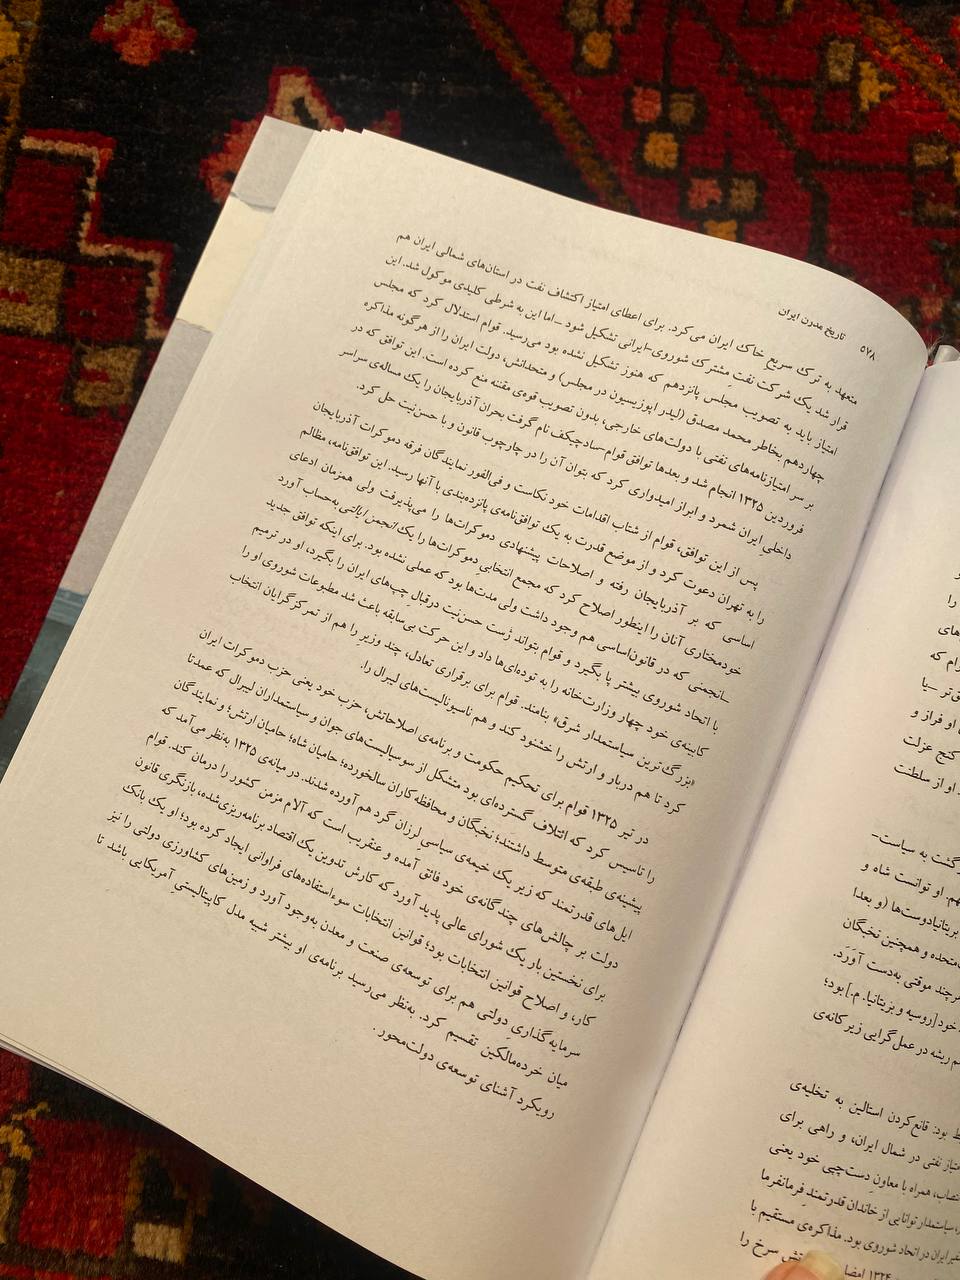 ۵۷۸ تاریخ مدرن ایران
متعهد به ترک سریع خاک ایران می‌کرد. برای اعطای امتیاز اکتشاف نفت در استان‌های شمالی ایران هم
قرار شد یک شرکت نفتِ مشترک شوروی–ایرانی تشکیل شود –اما این به شرطی کلیدی موکول شد. این
امتیاز باید به تصویب مجلس پانزدهم که هنوز تشکیل نشده بود می‌رسید. قوام استدلال کرد که مجلس
چهاردهم بخاطر محمد مصدق (لیدر اپوزیسیون در مجلس) و متحدانش، دولت ایران را از هرگونه مذاکره
بر سر امتیازنامه‌های نفتی با دولت‌های خارجی، بدون تصویب قوه‌ی مقننه منع کرده است. این توافقی که در
فروردین ۱۳۲۵ انجام شد و بعدها توافق قوام–سادچیکف نام گرفت بحران آذربایجان را یک مساله‌ی سراسر
داخلی ایران شمرد و ابراز امیدواری کرد که بتوان آن را در چارچوب قانون و با حسن‌نیت حل کرد.
پس از این توافق، قوام از شتاب اقدامات خود نکاست و فی‌الفور نمایندگان فرقه دموکرات آذربایجان
را به تهران دعوت کرد و از موضع قدرت به یک توافق‌نامه‌ی پانزده‌بندی با آنها رسید. این توافق‌نامه، مظالم
اساسی که بر آذربایجان رفته و اصلاحات پیشنهادی دموکرات‌ها را می‌پذیرفت ولی همزمان ادعای
خودمختاری آنان را اینطور اصلاح کرد که مجمع انتخابیِ دموکرات‌ها را یک انجمن ایالتی به‌حساب آورد
–انجمنی که در قانون‌اساسی هم وجود داشت ولی مدت‌ها بود که عملی نشده بود. برای اینکه توافق جدید
با اتحاد شوروی بیشتر پا بگیرد و قوام بتواند ژست حسن‌نیت درقبالِ چپ‌های ایران را بگیرد، او در ترمیم
کابینه‌ی خود چهار وزارت‌خانه را به توده‌ای‌ها داد و این حرکت بی‌سابقه باعث شد مطبوعات شوروی او را
«بزرگ‌ترین سیاستمدار شرق» بنامند. قوام برای برقراری تعادل، چند وزیر را هم از تمرکزگرایان انتخاب
کرد تا هم دربار و ارتش را خشنود کند و هم ناسیونالیست‌های لیبرال را.
در تیر ۱۳۲۵ قوام برای تحکیم حکومت و برنامه‌ی اصلاحاتش، حزب خود یعنی حزب دموکرات ایران
را تاسیس کرد که ائتلاف گسترده‌ای بود متشکل از سوسیالیست‌های جوان و سیاستمداران لیبرال که عمدتا
پیشینه‌ی طبقه‌ی متوسط داشتند؛ نخبگان و محافظه‌کاران سالخورده؛ حامیان شاه؛ حامیان ارتش؛ و نمایندگان
ایل‌های قدرتمند که زیر یک خیمه‌ی سیاسیِ لرزان گرد هم آورده شدند. در میانه‌ی ۱۳۲۵ به‌نظر می‌آمد که
دولت بر چالش‌های چندگانه‌ی خود فائق آمده و عنقریب است که آلام مزمن کشور را درمان کند. قوام
برای نخستین بار یک شورای عالی پدید آورد که کارش تدوین یک اقتصاد برنامه‌ریزی‌شده، بازنگری قانون
کار، و اصلاح قوانین انتخابات بود؛ قوانین انتخابات سوءاستفاده‌های فراوانی ایجاد کرده بود؛ او یک بانک
سرمایه‌گذاریِ دولتی هم برای توسعه‌ی صنعت و معدن به‌وجود آورد و زمین‌های کشاورزی دولتی را نیز
میان خرده‌مالکین تقسیم کرد. به‌نظر می‌رسید برنامه‌ی او بیشتر شبیه مدل کاپیتالیستیِ آمریکایی باشد تا
رویکرد آشنای توسعه‌ی دولت‌محور.
را
های
رام که
ق‌تر –یا
او فراز و
کنج عزلت
د او از سلطنت
رگشت به سیاست–
مهم. او توانست شاه و
بریتانیادوست‌ها (و بعدا
متحده و همچنین نخبگان
هرچند موقتی به‌دست آوَرَد.
خود [روسیه و بریتانیا. م.] بود؛
م ریشه در عمل‌گرایی زیرکانه‌ی
ط بود: قانع‌کردن استالین به تخلیه‌ی
متیاز نفتی در شمال ایران، و راهی برای
نتصاب، همراه با معاونِ دست‌چپی خود یعنی
سیاستمدار توانایی از خاندان قدرتمندِ فرمانفرما
فیر ایران در اتحاد شوروی بود. مذاکره‌ی مستقیم با
تش سرخ را
۱۳۲۴ امضا